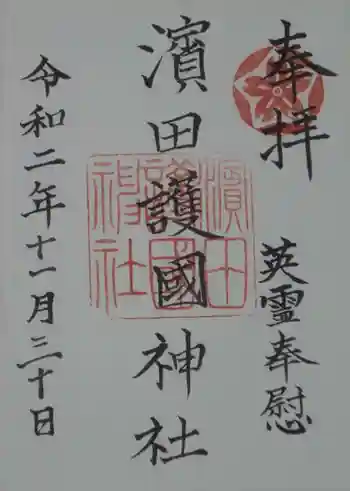 奉拝
英霊奉慰
濱田護國神社
令和二年十一月三十日
濱田
護國
神社